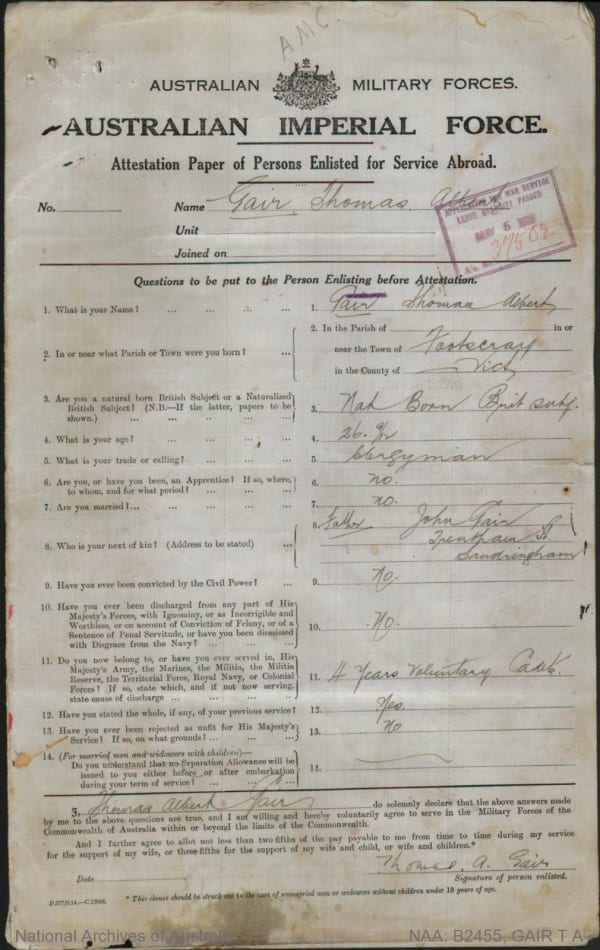 A.M.C.
AUSTRALIAN MILITARY FORCES.
AUSTRALIAN IMPERIAL FORCE.
Attestation Paper of Persons Enlisted for Service Abroad.
No. Name Gair Thomas Albert
WAR SERVICE
LEAVE
PASSED
MAY 5
Unit
Joined on
Questions to be put to the Person Enlisting before Attestation.
1. What is your Name? ... ... ... 1. Gair Thomas Albert
2. In or near what Parish or Town were you born? ... 2. In the Parish of in or
near the Town of Footscray
in the County of Vict
3. Are you a natural born British Subject or a Naturalized
British Subject? (N.B.—If the latter, papers to be
shown.) ... ... ... ... 3. Nat Born Brit subj.
4. What is your age? ... ... ... 4. 26
5. What is your trade or calling? ... ... ... 5. Clergyman
6. Are you, or have you been, an Apprentice? If so, where,
to whom, and for what period? ... ... ... 6. no.
7. Are you married? ... ... ... ... 7. no.
8. Who is your next of kin? (Address to be stated) ... 8. Father John Gair
St.
Sandringham
9. Have you ever been convicted by the Civil Power? ... 9. No.
10. Have you ever been discharged from any part of His
Majesty's Forces, with Ignominy, or as Incorrigible and
Worthless, or on account of Conviction of Felony, or of a
Sentence of Penal Servitude, or have you been dismissed
with Disgrace from the Navy? ... ... ... 10. No.
11. Do you now belong to, or have you ever served in, His
Majesty's Army, the Marines, the Militia, the Militia
Reserve, the Territorial Force, Royal Navy, or Colonial
Forces? If so, state which, and if not now serving,
state cause of discharge ... ... ... 11. 4 Years Voluntary Cadets.
12. Have you stated the whole, if any, of your previous service? 12. Yes.
13. Have you ever been rejected as unfit for His Majesty's
Service? If so, on what grounds? ... ... ... 13. No
14. (For married men and widowers with children)—
Do you understand that no Separation Allowance will be
issued to you either before or after embarkation
during your term of service? ... ... ... 14.
I, Thomas Albert Gair do solemnly declare that the above answers made
by me to the above questions are true, and I am willing and hereby voluntarily agree to serve in the Military Forces of the
Commonwealth of Australia within or beyond the limits of the Commonwealth.
And I further agree to allot not less than two-fifths of the pay payable to me from time to time during my service
for the support of my wife, or three-fifths for the support of my wife and child, or wife and children.*
Thomas A. Gair
Date Signature of person enlisted.
* This clause should be struck out in the case of unmarried men or widowers without children under 18 years of age.
National Archives of Australia NAA: B2455, GAIR T A